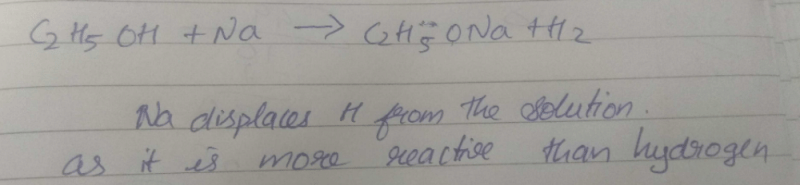 C2H5OH + Na → C2H5ONa + H2
Na displaces H from the solution.
as it is more reactive than hydrogen